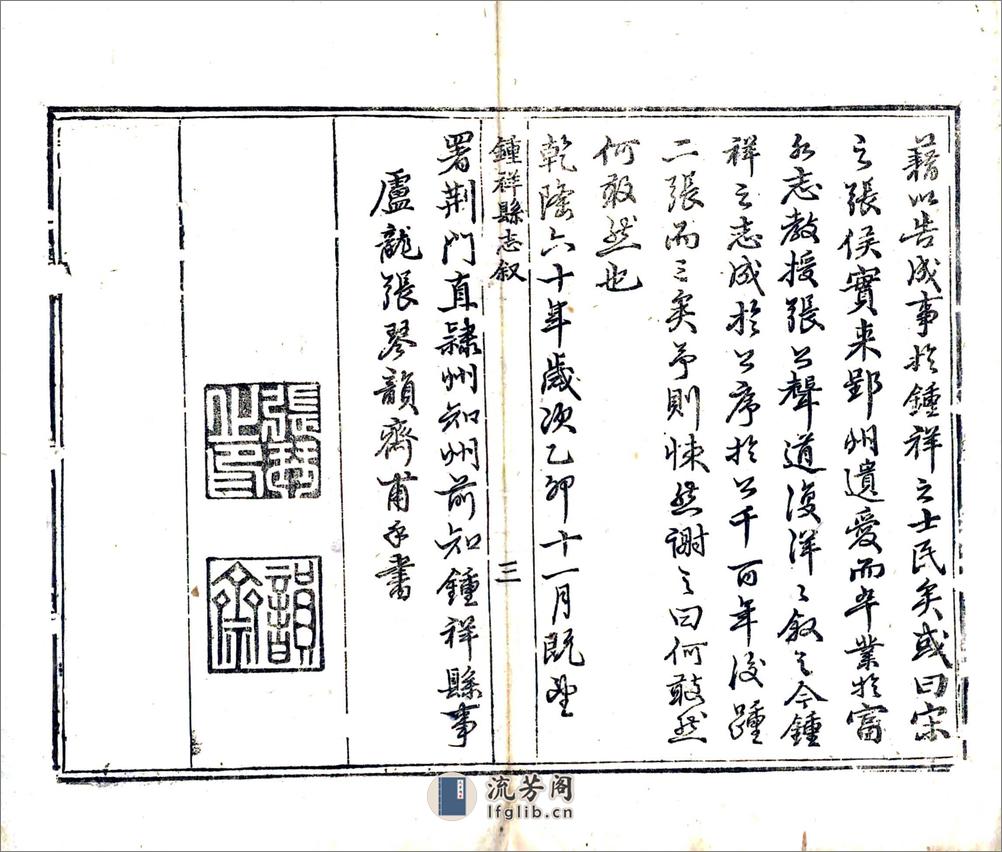 藉以告成事於鍾祥之士民矣或曰宋
之張侯實来郢州遺愛而卒業於富
水志教授張公聲道復洋〻叙之今鍾
祥之志成於公序於公千百年後踵
二張而三矣予則悚然谢之曰何敢然
何敢然也
乾隆六十年歲次乙卯十一月既望
鍾祥縣志叙
三
署荆門直隸州知州前知鍾祥縣事
盧龍張琴韻齋甫手書
張琴之印
韻齋
流芳阁
lfglib.cn